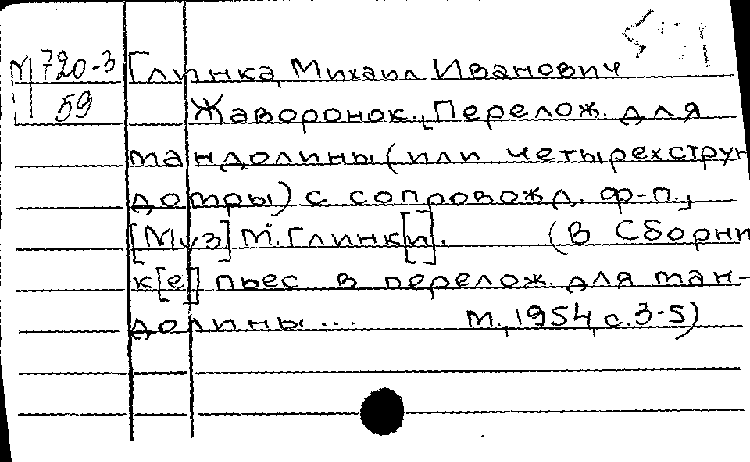 М 720-3 Глинка, Михаил Иванович
59 Жаворонок. [Перелож. для
мандолины (или четырехструн
домры) с сопровожд. ф-п.,
[Муз] М. Глинк[и]. (В Сборни
к[е] пьес в перелож. для ман-
долины... М., 1954, с. 3-5)